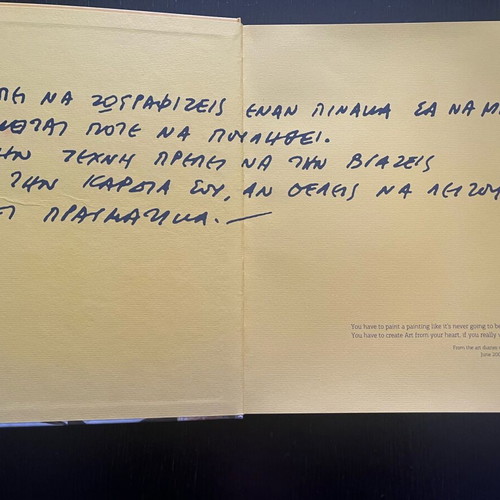 ΠΕΙ ΝΑ ΖΩΓΡΑΦΙΖΕΙΣ ΕΝΑΝ ΠΙΝΑΚΑ ΣΑ ΝΑ Μ
ΠΟΤΕ ΝΑ ΠΟΥΛΗΘΕΙ.
ΗΝ ΤΕΧΝΗ ΠΡΕΠΕΙ ΝΑ ΤΗΝ ΒΓΑΖΕΙΣ
ΤΗΝ ΚΑΡΔΙΑ ΣΟΥ, ΑΝ ΘΕΛΕΙΣ ΝΑ ΛΕΙΤΟΥ
ΕΙ ΠΡΑΓΜΑΤΙΚΑ.—
You have to paint a painting like it's never going to be
You have to create Art from your heart, if you really
From the art diaries
June 200